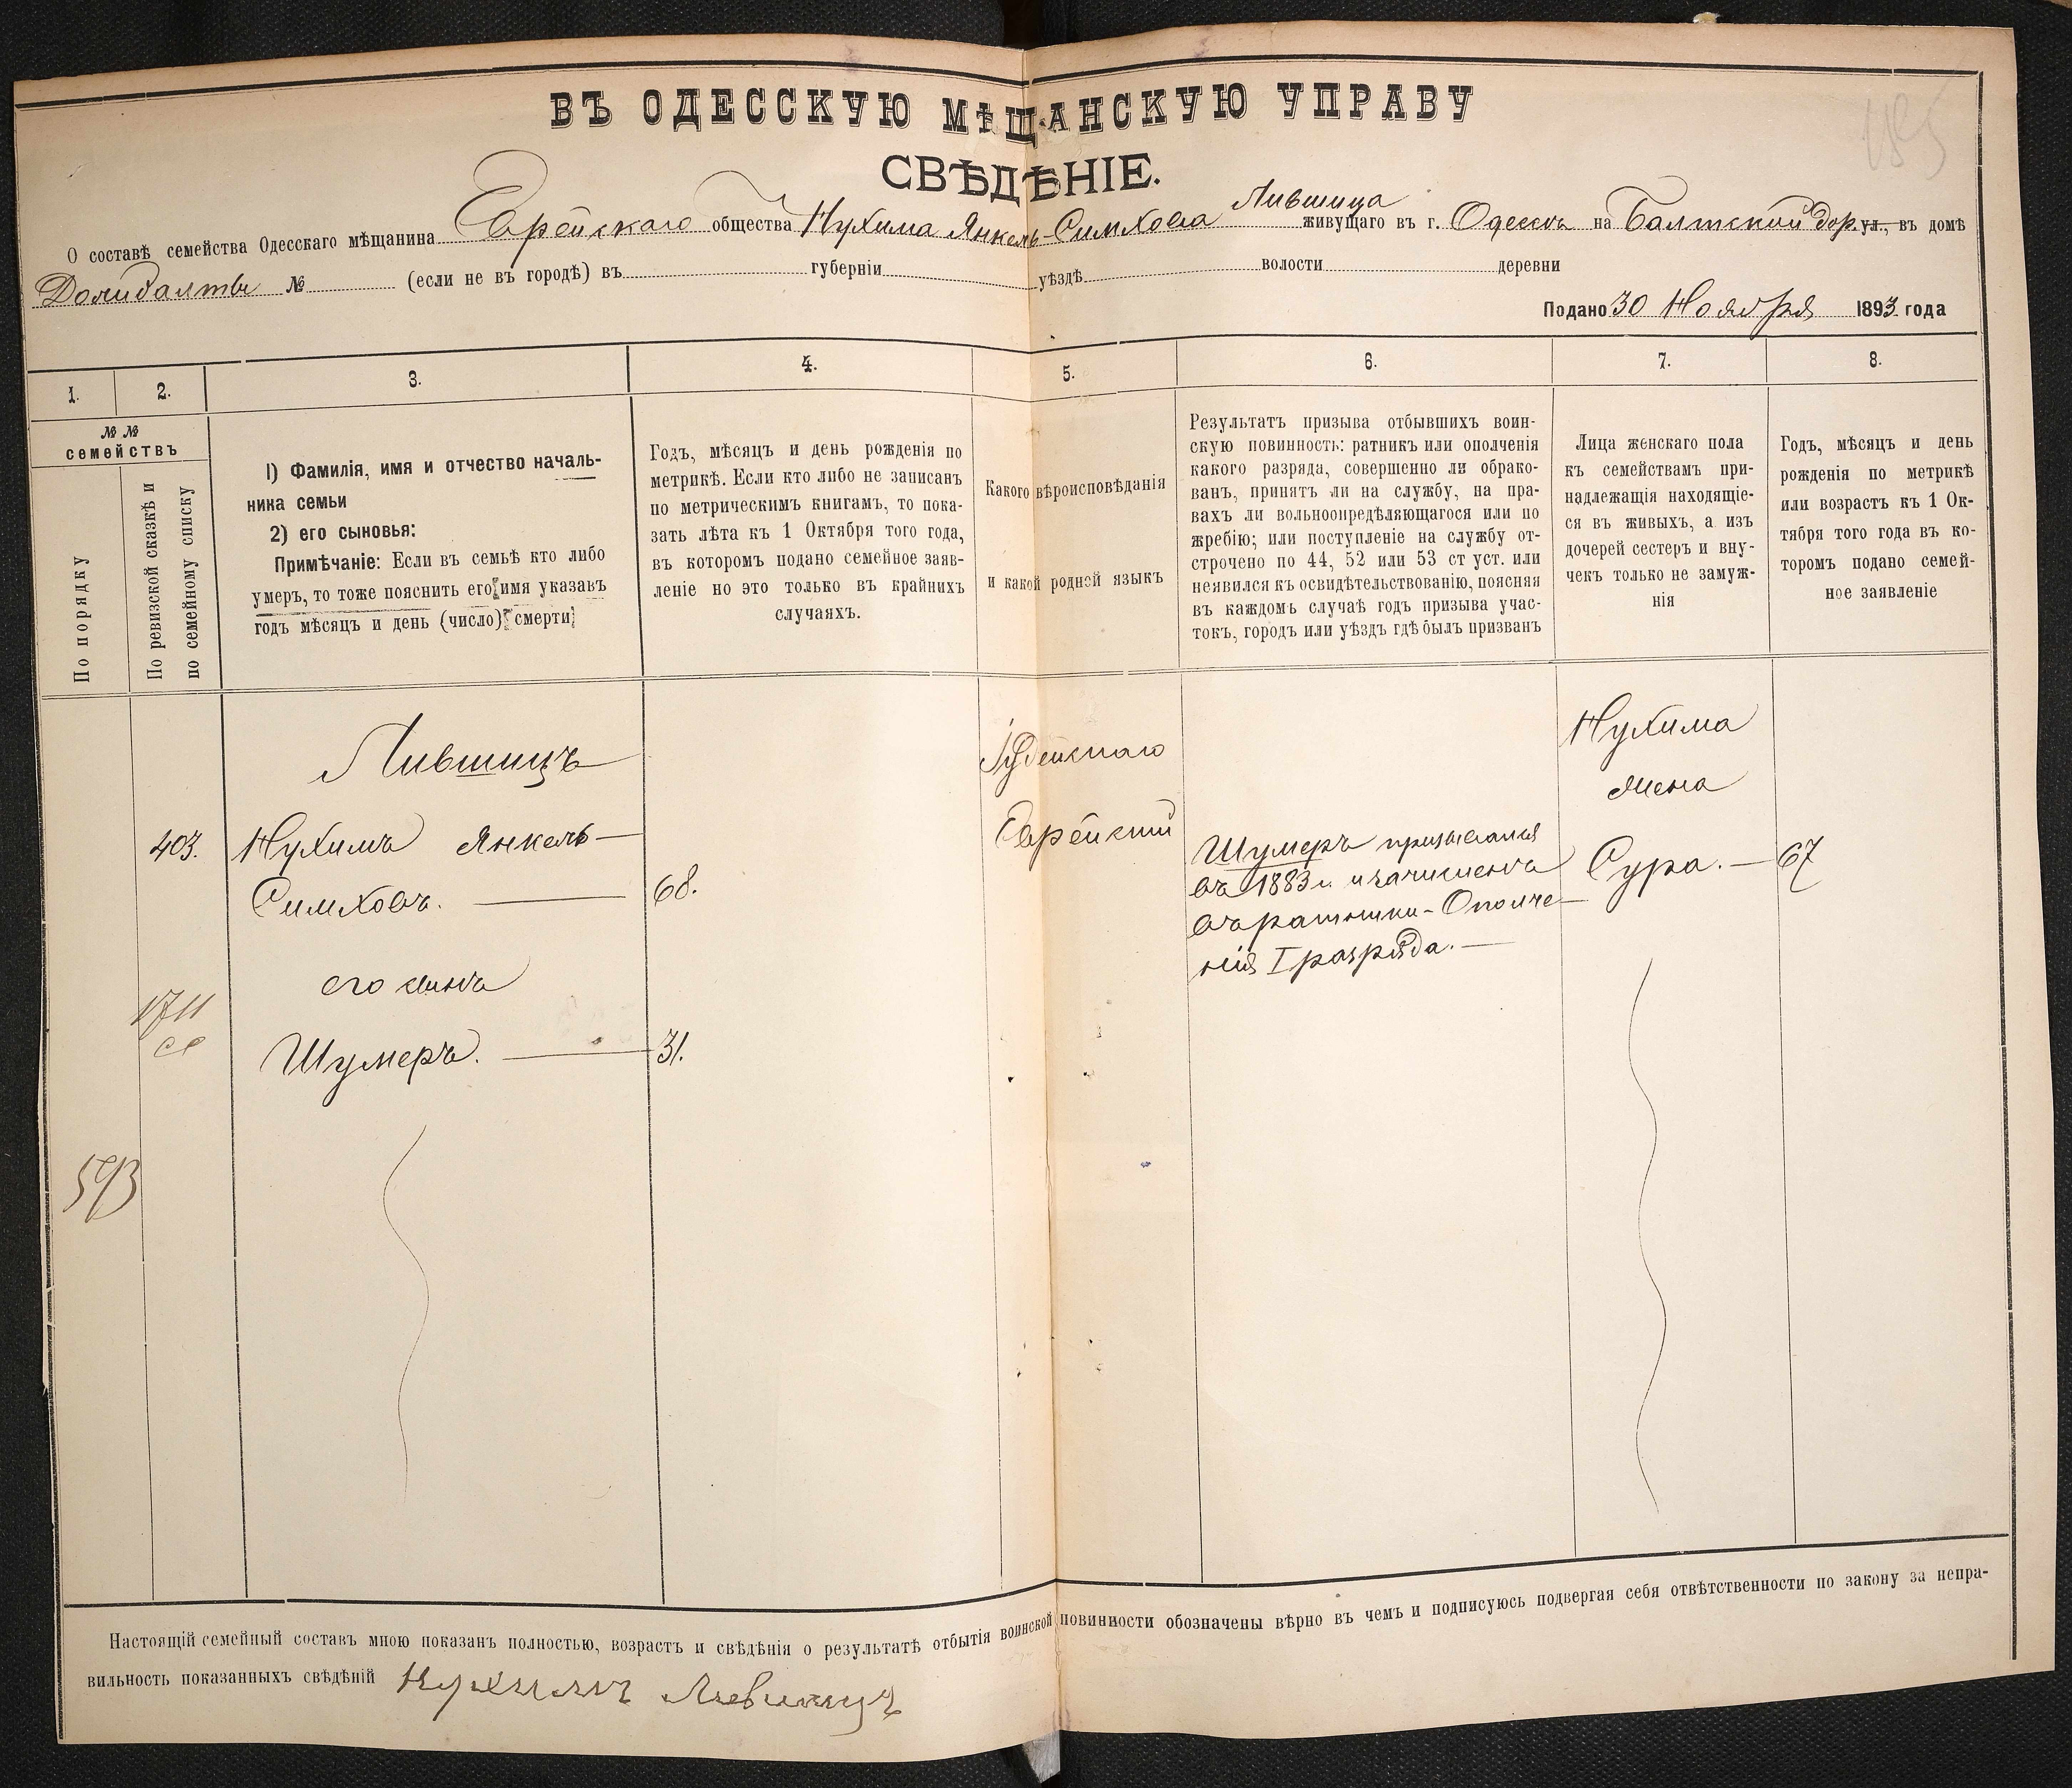 ВЪ ОДЕССКУЮ МѢЩАНСКУЮ УПРАВУ
СВѢДѢНІЕ.
О составѣ семейства Одесскаго мѣщанина Еврейскаго общества Нухима Янкель-Симхова Лившица живущаго въ г. Одессѣ на Балтской дор. ул., въ домѣ
№ (если не въ городѣ) въ губерніи уѣздѣ волости деревни
Подано 30 Ноября 1893 года
1.
2.
3.
4.
5.
6.
7.
8.
№ №
семействъ
По порядку
По ревизской сказкѣ и
по семейному списку
1) Фамилія, имя и отчество началь-
ника семьи
2) его сыновья:
Примѣчаніе: Если въ семьѣ кто либо
умеръ, то тоже пояснить его имя указавъ
годъ мѣсяцъ и день (число) смерти
Годъ, мѣсяцъ и день рожденія по
метрикѣ. Если кто либо не записанъ
по метрическимъ книгамъ, то пока-
зать лѣта къ 1 Октября того года,
въ которомъ подано семейное заяв-
леніе но это только въ крайнихъ
случаяхъ.
Какого вѣроисповѣданія
и какой родной языкъ
Результатъ призыва отбывшихъ воин-
скую повинность: ратникъ или ополченія
какого разряда, совершенно ли обрако-
ванъ, принятъ ли на службу, на пра-
вахъ ли вольноопредѣляющагося или по
жребію; или поступленіе на службу от-
строчено по 44, 52 или 53 ст уст. или
неявился къ освидѣтельствованію, поясняя
въ каждомъ случаѣ годъ призыва учас-
токъ, городъ или уѣздъ гдѣ былъ призванъ
Лица женскаго пола
къ семействамъ при-
надлежащія находящіе-
ся въ живыхъ, а изъ
дочерей сестеръ и вну-
чекъ только не замуж-
нія
Годъ, мѣсяцъ и день
рожденія по метрикѣ
или возрастъ къ 1 Ок-
тября того года въ ко-
торомъ подано семей-
ное заявленіе
Лившицъ
403. Нухимъ Янкель-
Симховъ. 68.
его сынъ
1711
Шумеръ. 31.
593
Іудейскаго
Еврейскій
Шумеръ призывался
въ 1883 г. и зачисленъ
въ ратники-Ополче-
нія I разряда.
Нухима
жена
Сура. 67
Настоящій семейный составъ мною показанъ полностью, возрастъ и свѣдѣнія о результатѣ отбытія воинской повинности обозначены вѣрно въ чемъ и подписуюсь подвергая себя отвѣтственности по закону за непра-
вильность показанныхъ свѣдѣній Нухимъ Лившицъ